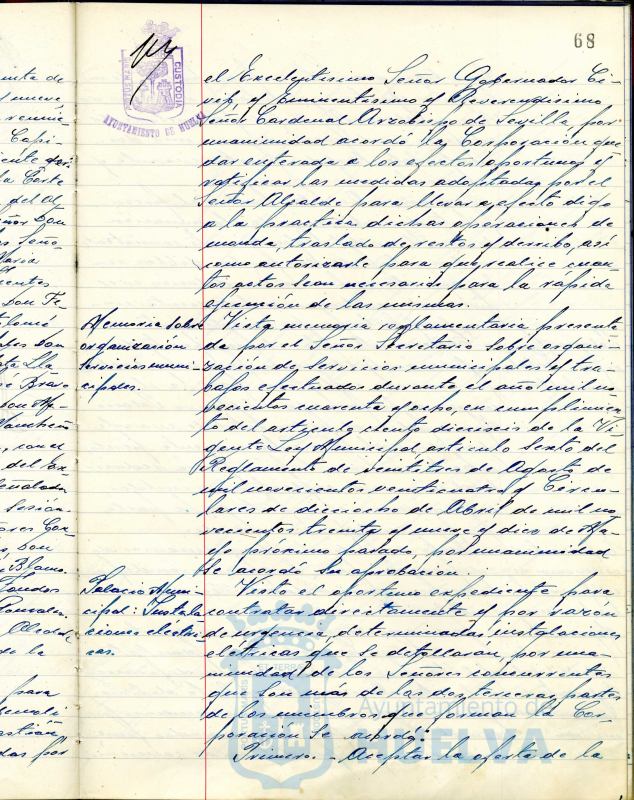 68
CUSTODIA
AYUNTAMIENTO DE HUELVA
el Excelentisimo Señor Gobernador Ci-
vil, y Eminentisimo y Reverendisimo
Señor Cardenal Arzobispo de Sevilla por
unanimidad acordó la Corporación que-
dar enterada a los efectos oportunos y
ratificar las medidas adoptadas por el
Señor Alcalde para llevar a efecto digo
a la practica dichas operaciones de
monda, traslado de restos y derribo, así
como autorizarle para que realice cuan-
tos actos sean necesarios para la rapida
ejecución de las mismas.
Memoria sobre
organización
Servicios muni-
cipales.
Vista memoria reglamentaria presenta
da por el Señor Secretario sobre organi-
zación de servicios municipales y tra-
bajos efectuados durante el año mil no-
vecientos cuarenta y ocho, en cumplimien-
to del articulo ciento dieciseis de la Vi-
gente Ley Municipal, articulo Sexto del
Reglamento de veintitres de Agosto de
mil novecientos veinticuatro y Circu-
lares de dieciocho de Abril de mil no-
vecientos treinta y nueve y diez de Ma-
yo próximo pasado, por unanimidad
se acordó su aprobación.
Palacio Muni-
cipal: Instala-
ciones eléctri-
cas.
Visto el oportuno expediente para
contratar directamente y por razón
de urgencia, determinadas instalaciones
eléctricas que se detallarán, por una-
nimidad de los Señores concurrentes
que son más de las dos terceras partes
de los miembros que forman la Cor-
poración se acordó:
Primero. - Aceptar la oferta de la
Ayuntamiento de
HUELVA